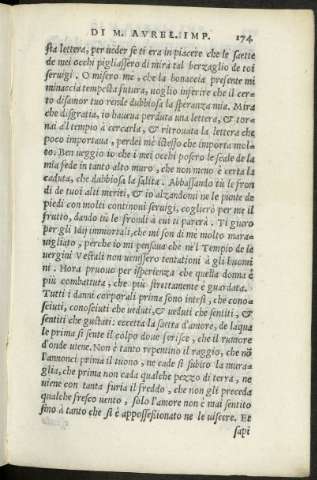 DI M. AVREL. IMP. 174
sta lettera, per ueder se ti era in piacere che le saette
de mei occhi pigliassero di mira tal berzaglio de toi
seruigi. O misero me, che la bonaccia presente mi
minaccia tempesta futura, uoglio inferire che il cer⸗
to disamor tuo rende dubbiosa la speranza mia. Mira
che disgratia, io haueua perduta una lettera, & tor⸗
nai al tempio à cercarla, & ritrouata la lettera che
poco importaua, perdei me istesso che importa mol⸗
to. Ben ueggio io che i mei occhi posero le scale de la
mia fede in tanto alto muro, che non meno è certa la
caduta, che dubbiosa la salita. Abbassando tù le fron
di de tuoi alti meriti, & io alzandomi ne le punte de
piedi con molti continoui seruigi, coglierò per me il
frutto, dando tù le frondi à cui ti parerà. Ti giuro
per gli Idij immortali, che mi son di me molto mara⸗
uigliato, perche io mi pensaua che nè'l Tempio de le
uergini Vestali non uenissero tentationi à gli huomi
ni. Hora pruouo per isperienza che quella donna è
più combattuta, che più strettamente è guardata.
Tutti i danni corporali prima sono intesi, che cono⸗
sciuti, conosciuti che ueduti, & ueduti che sentiti, &
sentiti che gustati: eccetto la saetta d'amore, de laqua
le prima si sente il colpo doue ferisce, che il rumore
d'onde uiene. Non è tanto repentino il raggio, che nō
l'annonci prima il tuono, ne cade sì subito la mura⸗
glia, che prima non cada qualche pezzo di terra, ne
uiene con tanta furia il freddo, che non gli preceda
qualche fresco uento, solo l'amore non è mai sentito
sino à tanto che si è appossessionato ne le uiscere. Et
sapi